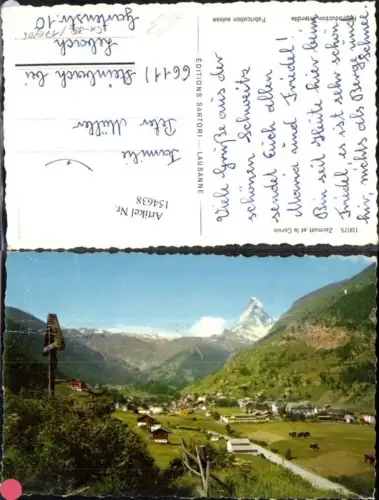 10075    Zermatt et le Cervin
Fabrication suisse
Reproduction interdite
EDITIONS SARTORI — LAUSANNE
Viele Grüße aus der
schönen Schweiz
sendet Euch allen
Maria und Friedel!
Bin seit heute hier beim
Friedel, es ist sehr schön
hier, nichts als Berge und
Schnee
Artikel Nr.
154638
Familie
Peter Müller
6611) Steinbach bei
Lebach
Gartenstr 10